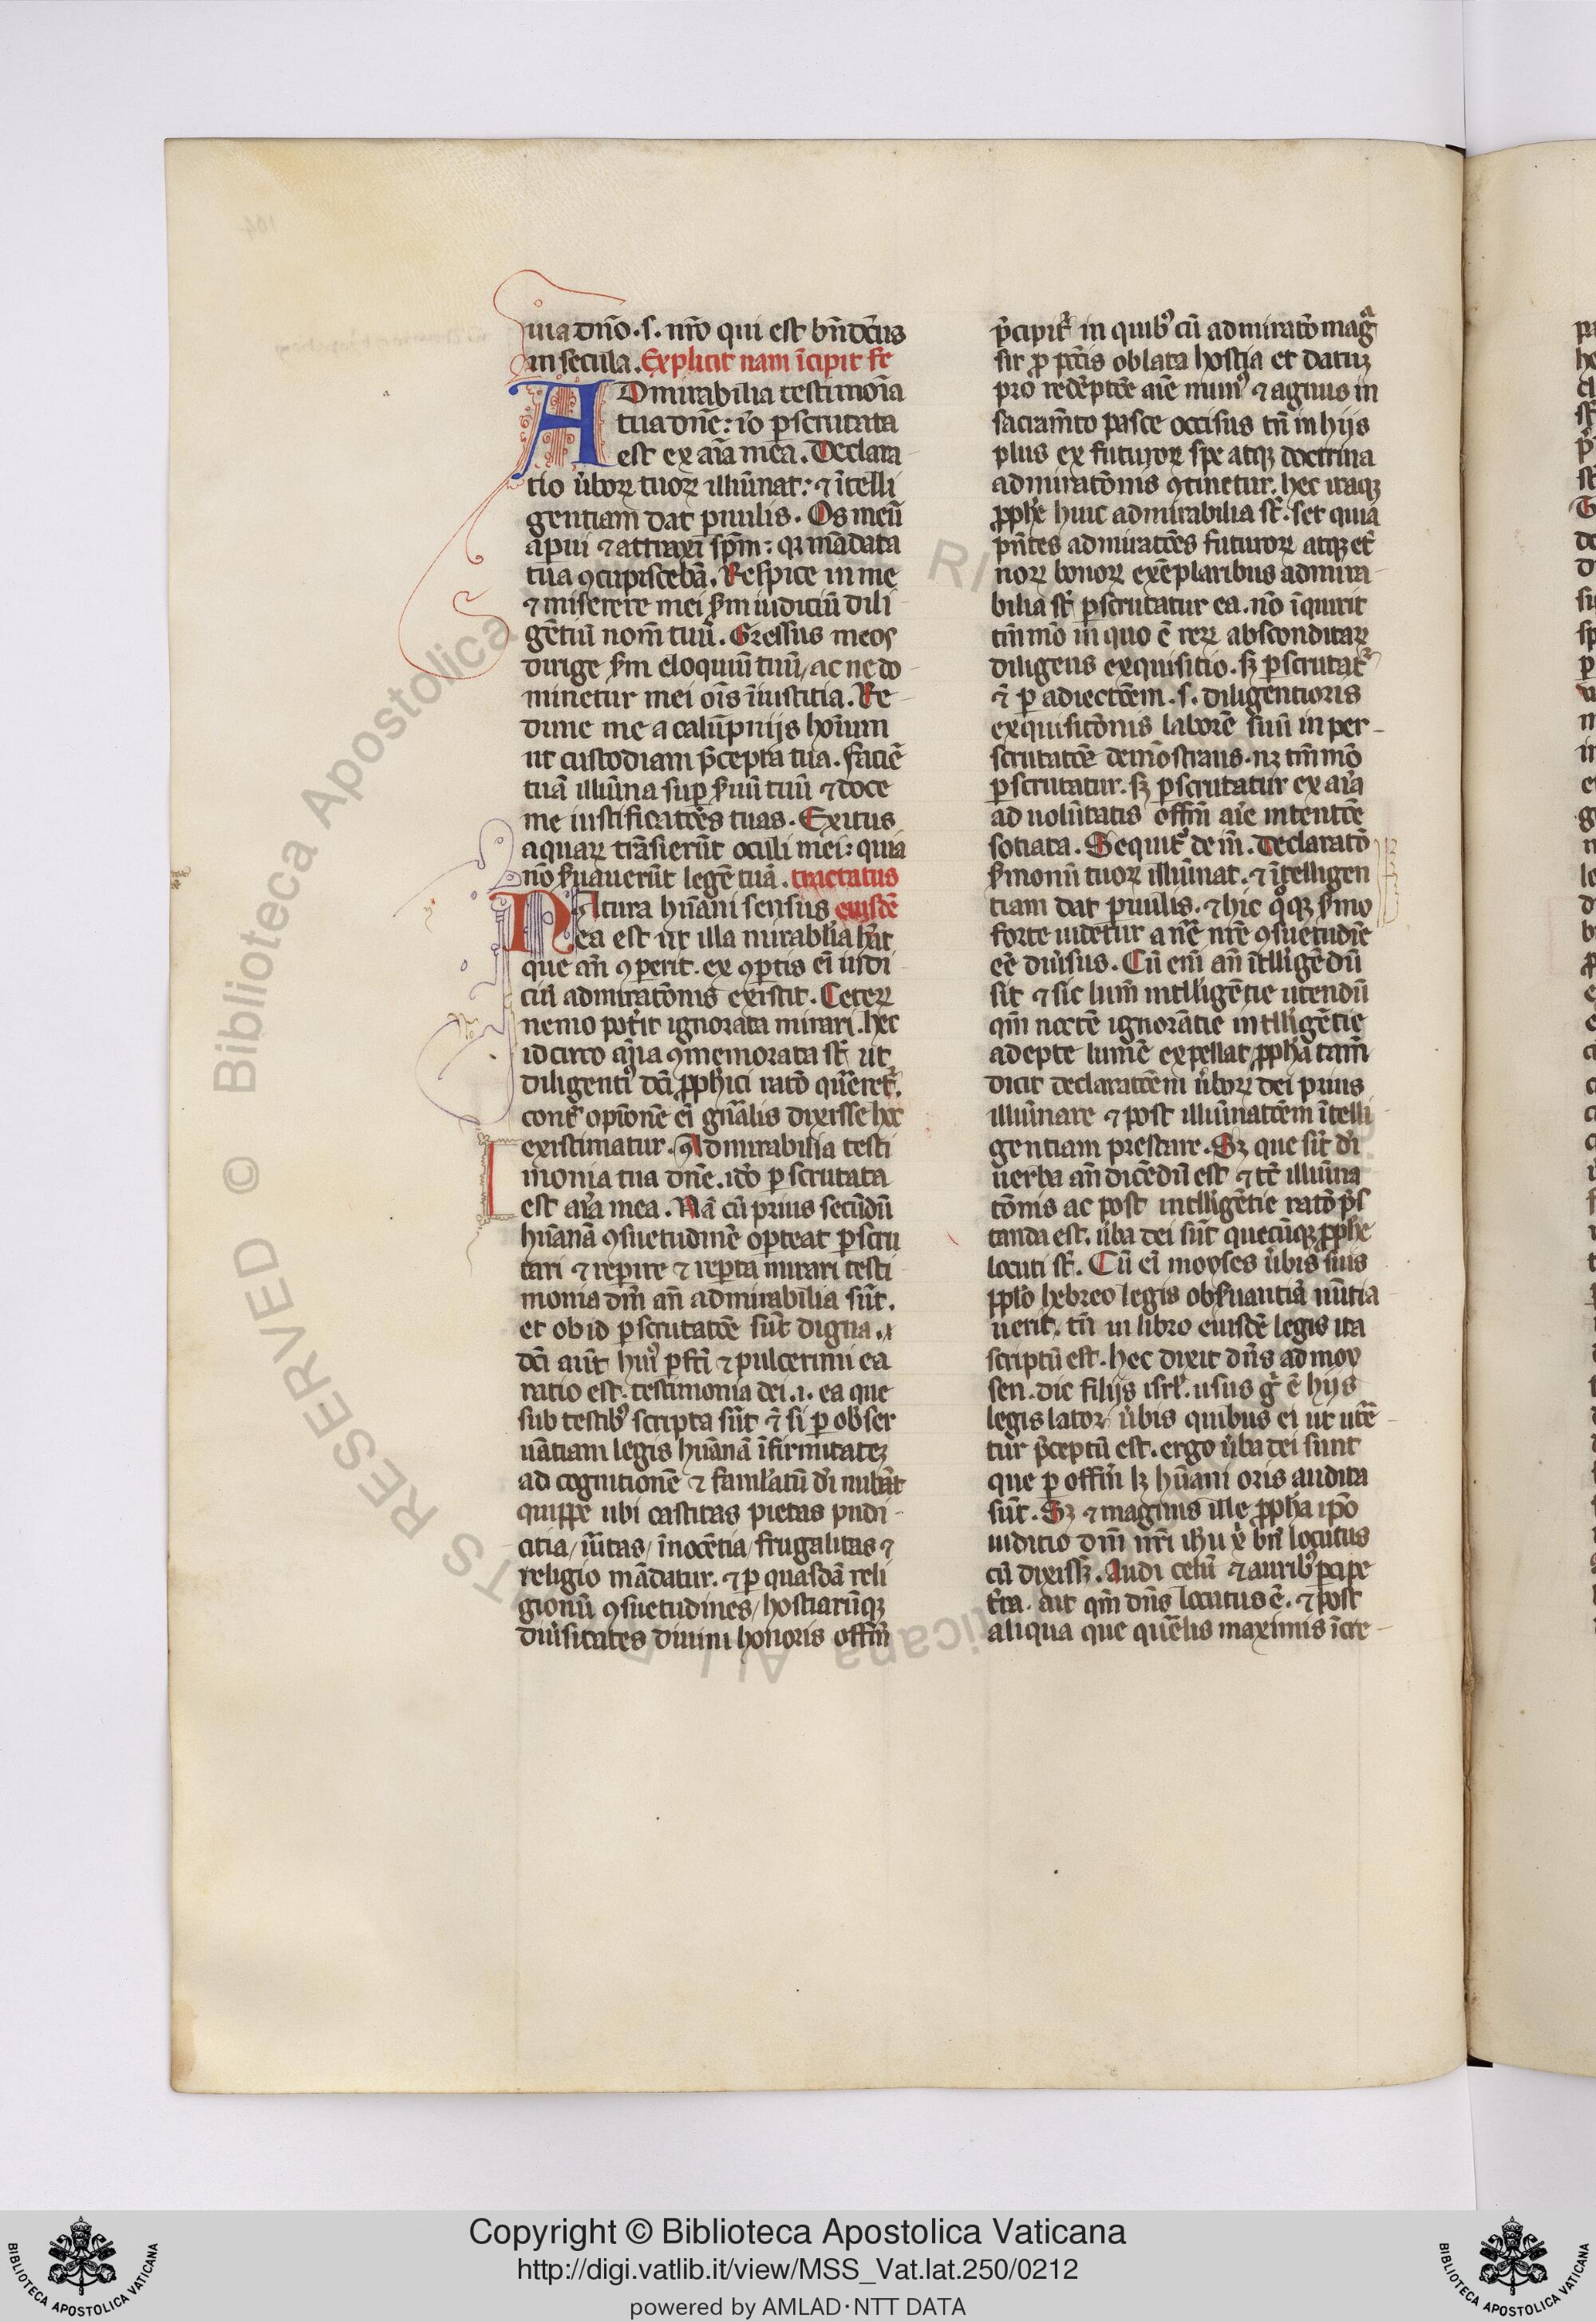 iua dn̄o. s. nr̄o qui est bn̄dc̄us
in secula. Explicit nam īcipit fe
ADmirabilia testimoīa
tua dn̄e: iō ꝑscrutata
est ex aīa mea. Declara-
tio ŭboꝝ tuoꝝ illūinat: ⁊ ītelli
gentiam dat ꝑuulis. Os meū
aperui ⁊ attraxi sp̄m: qꝫ mādata
tua ꝯcupiscebā. Respice in me
⁊ miserere mei ẜm iudiciū dili-
gētiū nom̄ tuū. Gressus meos
dirige ẜm eloquiū tuū / ac ne do-
minetur mei oīs īiustitia. Re-
dime me a calūpniis hoīum
ut custodiam p̄cepta tua. faciē
tuā illūina suꝑ ẜuū tuū ⁊ doce
me iustificatōes tuas. Exitus
aquaꝝ trāsierūt oculi mei: quia
nō ẜuauerūt legē tuā. tractatus
NAtura hūani sensus eiusdē
ea est ut illa mirabilia hēat
que an̄ ꝯperit. ex ꝯꝑtis ei iudi-
ciū admiratōnis existit. Ceteꝝ
nemo pot̄it ignorata mirari. hec
idcirco a qͥa ꝯmemorata st̄ ut
diligentiꝰ dc̄i ꝓph̄ici ratō quereret̄.
contᵃ opīonē ei gn̄alis dixisse hec
existimatur. Admirabilia testi
monia tua dn̄e. idō ꝑscrutata
est aīa mea. Nā cū prius secūdū
hūanā ꝯsuetudinē oporteat ꝑscru
tari ⁊ reꝑire ⁊ reꝑta mirari testi
monia dn̄i an̄ admirabilia sūt.
et ob id ꝑscrutatōe sūt digna.
dc̄i aūt huiꝰ ꝑfc̄i ⁊ pulcerrimi ea
ratio est. testimonia dei .i. ea que
sub testibꝰ scripta sūt ⁊ si ꝑ obser
uātiam legis hūanā īfirmitatē
ad cognitionē ⁊ famulatū dei
quippe ubi castitas pietas pudi-
citia / ūitas / īnocētia / frugalitas ⁊
religio mādatur. ⁊ ꝑ quasdā reli
gionū ꝯsuetudines / hostiarūqꝫ
diūsitates diuini honoris offīm
p̄cipit̄ in quibꝰ cū admiratō magᵃ
sit ꝓ pct̄is oblata hostia et datuꝫ
pro redēptōe aīe ⁊ agnus in
sacram̄to pasce occisus tn̄ in hijs
plus ex futuroꝝ spe atqꝫ doctrina
admiratōnis ꝯtinetur. hec itaqꝫ
ꝓphē huic admirabilia st̄. set quia
pn̄tes admiratōes futuroꝝ atqꝫ et̄
noꝝ bonoꝝ exēplaribus admira-
bilia st̄ ꝑscrutatur ea. nō īquirit
tm̄mō in quo ē reꝝ absconditaꝝ
diligens exquisitio. sꝫ ꝑscrutat̄
⁊ ꝑ adiectōem .s. diligentioris
exquisitōnis laborē suū in per-
scrutatōe demōstrans. nꝫ tm̄mō
ꝑscrutatur. sꝫ ꝑscrutatur ex aīa
ad uolūtatis offīm aīe intentōe
sociata. Sequit̄ deīn. Declaratō
ẜmonū tuoꝝ illūinat. ⁊ ītelligen
tiam dat ꝑuulis. ⁊ hic qͦqꝫ ẜmo
forte uidetur a nr̄e ꝯsuetudīe
eē diūsus. Cū enī an̄ ītelligēdū
sit ⁊ sic lum̄ intelligētie utendū
qm̄ noctē ignorātie intelligētie
adepte lumē expellat ꝓpha tam̄
dicit declaratōem ŭboꝝ dei prius
illūinare ⁊ post illūinatōem ītelli
gentiam prestare. Sꝫ que sīt dī
uerba an̄ dicēdū est ⁊ tc̄ illūina
tōnis ac post intelligētie ratō p̄s
tanda est. ūba dei sūt quecūqꝫ ꝓphē
locuti st̄. Cū ei moyses ūbis suis
ppl̄o hebreo legis obẜuantiā nūtia-
uerit. tn̄ in libro eiusdē legis ita
scriptū est. hec dixit dn̄s ad moy
sen. dic filijs isrl̄. usus gͦ ē hijs
legis lator ūbis quibus ei ut utē-
tur p̄ceptū est. ergo ūba dei sunt
que ꝑ offīm lꝫ hūani oris audita
sūt. Sꝫ ⁊ magnus ille ꝓpha ipō
iuditio dn̄i nr̄i ihū xͥ bn̄ locutus
cū dixissꝫ. Audi celū ⁊ auribꝰ ꝑcipe
tr̄ra. ait qm̄ dn̄s locutus ē. ⁊ post
aliqua que querelis maximis īcre-
© Biblioteca Apostolica Vaticana ALL RIGHTS RESERVED
Copyright © Biblioteca Apostolica Vaticana
http://digi.vatlib.it/view/MSS_Vat.lat.250/0212
powered by AMLAD·NTT DATA
BIBLIOTECA APOSTOLICA VATICANA
BIBLIOTECA APOSTOLICA VATICANA